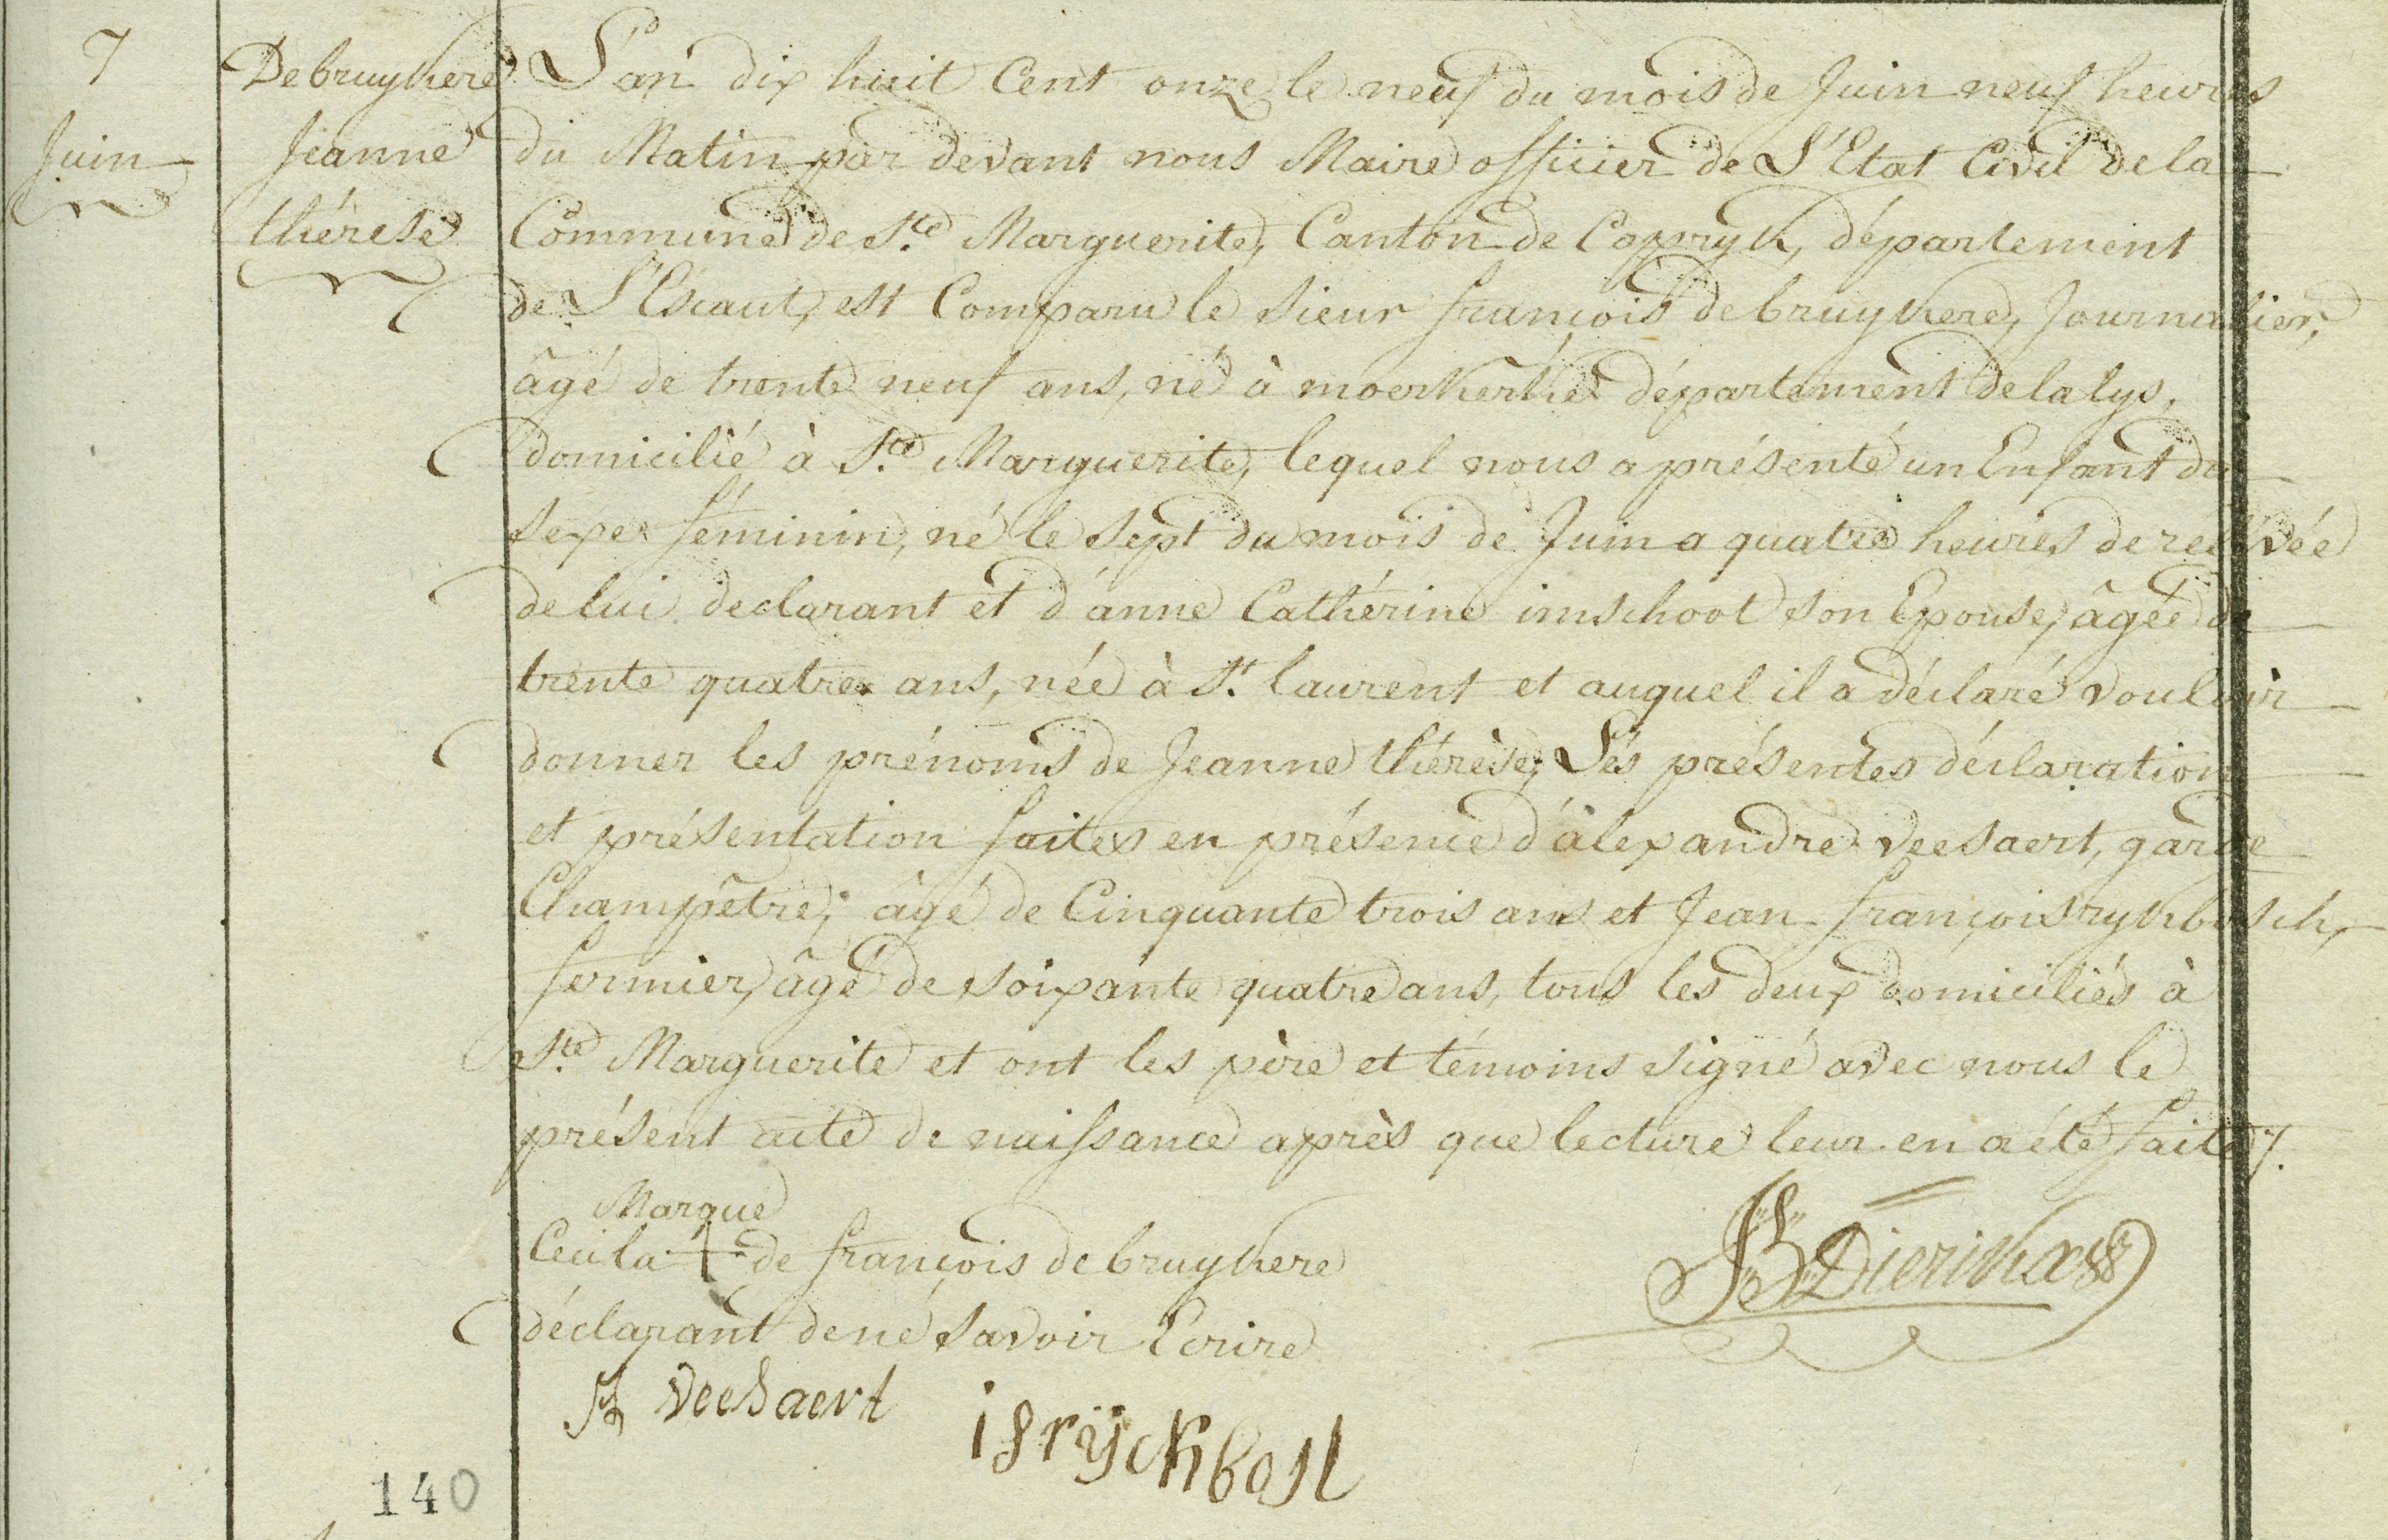 7
Juin
Debruykere
Jeanne
thérese
L'an dix huit Cent onze le neuf du mois de Juin neuf heures
du Matin par devant nous Maire officier de L'Etat Civil de la
Commune de Ste Marguerite, Canton de Capryk, département
de L'Escaut, est Comparu le Sieur françois debruykere, Journalier,
âgé de trente neuf ans, né à moerkerke département de la lys,
domicilié à Ste Marguerite, lequel nous a présenté un Enfant du
Sexe féminin, né le Sept du mois de Juin a quatre heures de relevée
de lui declarant et d'anne Cathérine imschoot son Epouse, âgée de
trente quatre ans, née à St laurent et auquel il a déclaré vouloir
donner les prénoms de Jeanne thérèse; Les présentes déclaration
et présentation faites en présence d'alexandre Veesaert, garde
Champêtre; âgé de Cinquante trois ans et Jean françois rykbosch,
fermier, âgé de soixante quatre ans, tous les deux domiciliés à
Ste Marguerite et ont les père et témoins signé avec nous le
présent acte de naissance après que lecture leur en a été faite /.
Marque
Ceci la + de françois debruykere
déclarant de né savoir Ecrire
JB Dierikx
Veesaert
i f rÿckbosch
140